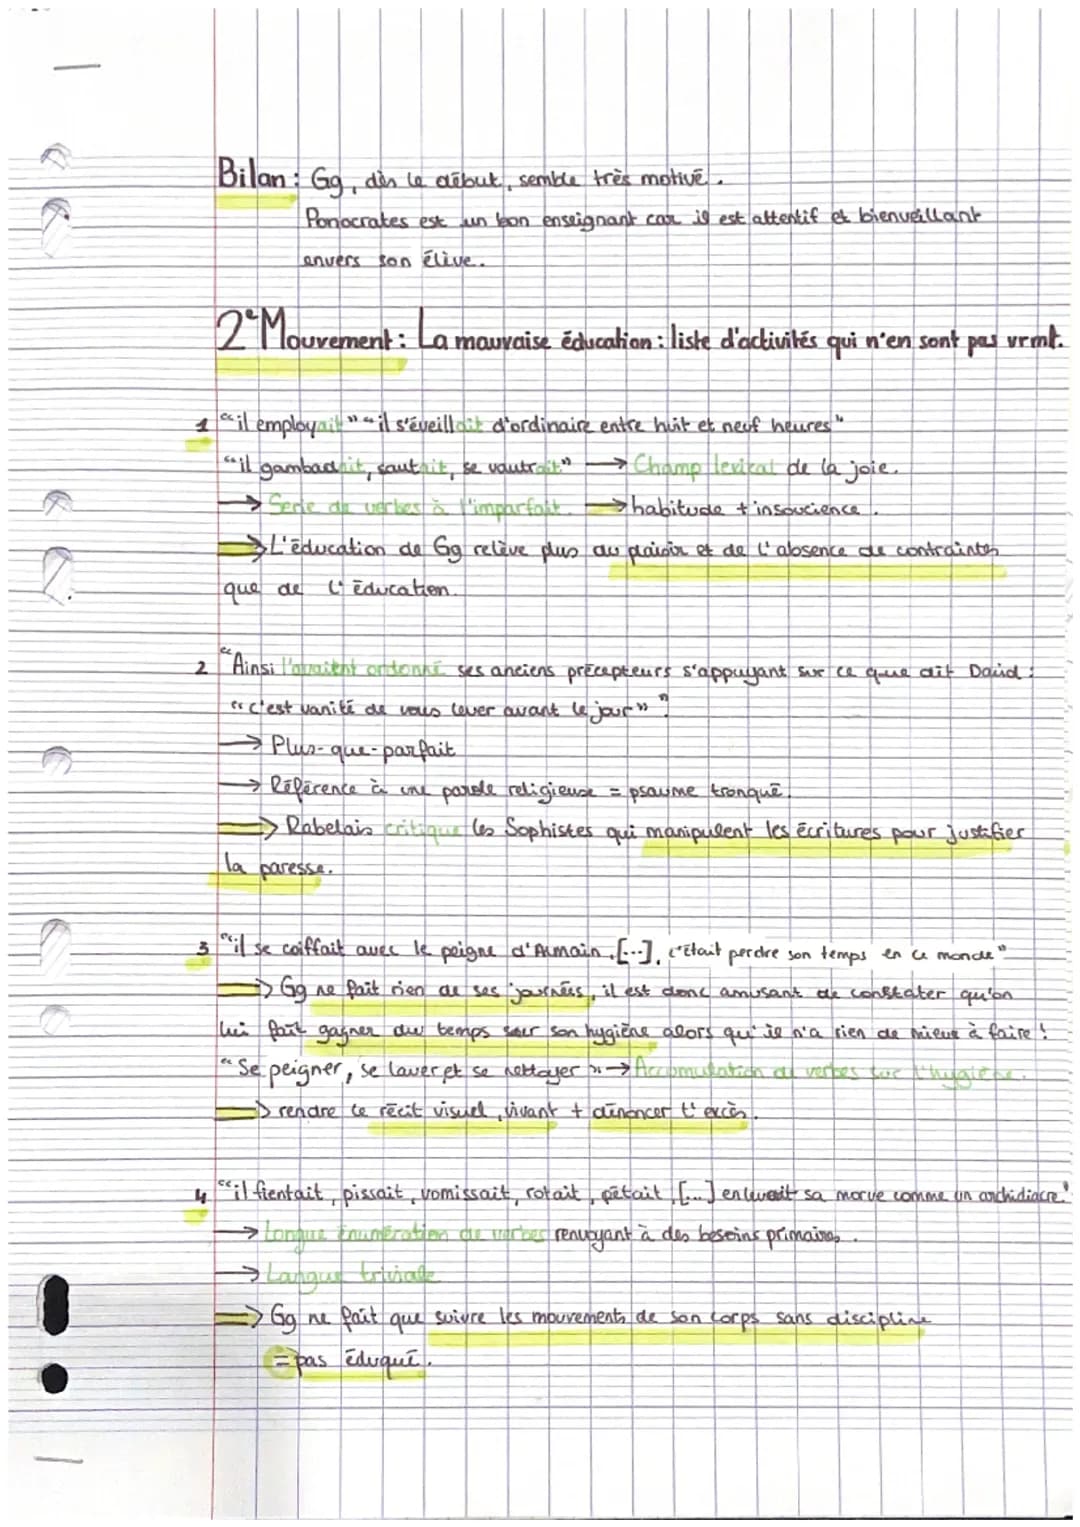 Bilan : Gg, dès le début, semble très motivé.
Ponocrates est un bon enseignant car il est attentif et bienveillant
envers son élève.
2e Mouvement : La mauvaise éducation : liste d'activités qui n'en sont pas vrmt.
1 "il employait" "il s'éveillait d'ordinaire entre huit et neuf heures"
"il gambadait, sautait, se vautrait" → Champ lexical de la joie.
→ Serie de verbes à l'imparfait. → habitude + insoucience.
⇒ L'éducation de Gg relève plus du plaisir et de l'absence de contraintes
que de l'éducation.
2 "Ainsi l'avaient ordonné ses anciens précepteurs s'appuyant sur ce que dit David :
"c'est vanité de vous lever avant le jour"".
→ Plus-que-parfait
→ Référence à une parole religieuse = psaume tronqué.
⇒ Rabelais critique les Sophistes qui manipulent les écritures pour justifier
la paresse.
3 "il se coiffait avec le peigne d'Almain, [...], c'était perdre son temps en ce monde"
⇒ Gg ne fait rien de ses journées, il est donc amusant de constater qu'on
lui fait gagner du temps sur son hygiène alors qu'il n'a rien de mieux à faire !
"Se peigner, se laver et se nettoyer" → Accumulation de verbes sur l'hygiène.
⇒ rendre le récit visuel, vivant + dénoncer l'excès.
4 "il fientait, pissait, vomissait, rotait, pétait, [...] enlevait sa morve comme un archidiacre."
→ Longue énumération de verbes renvoyant à des besoins primaires.
→ Langue triviale
⇒ Gg ne fait que suivre les mouvements de son corps sans discipline
= pas éduqué.